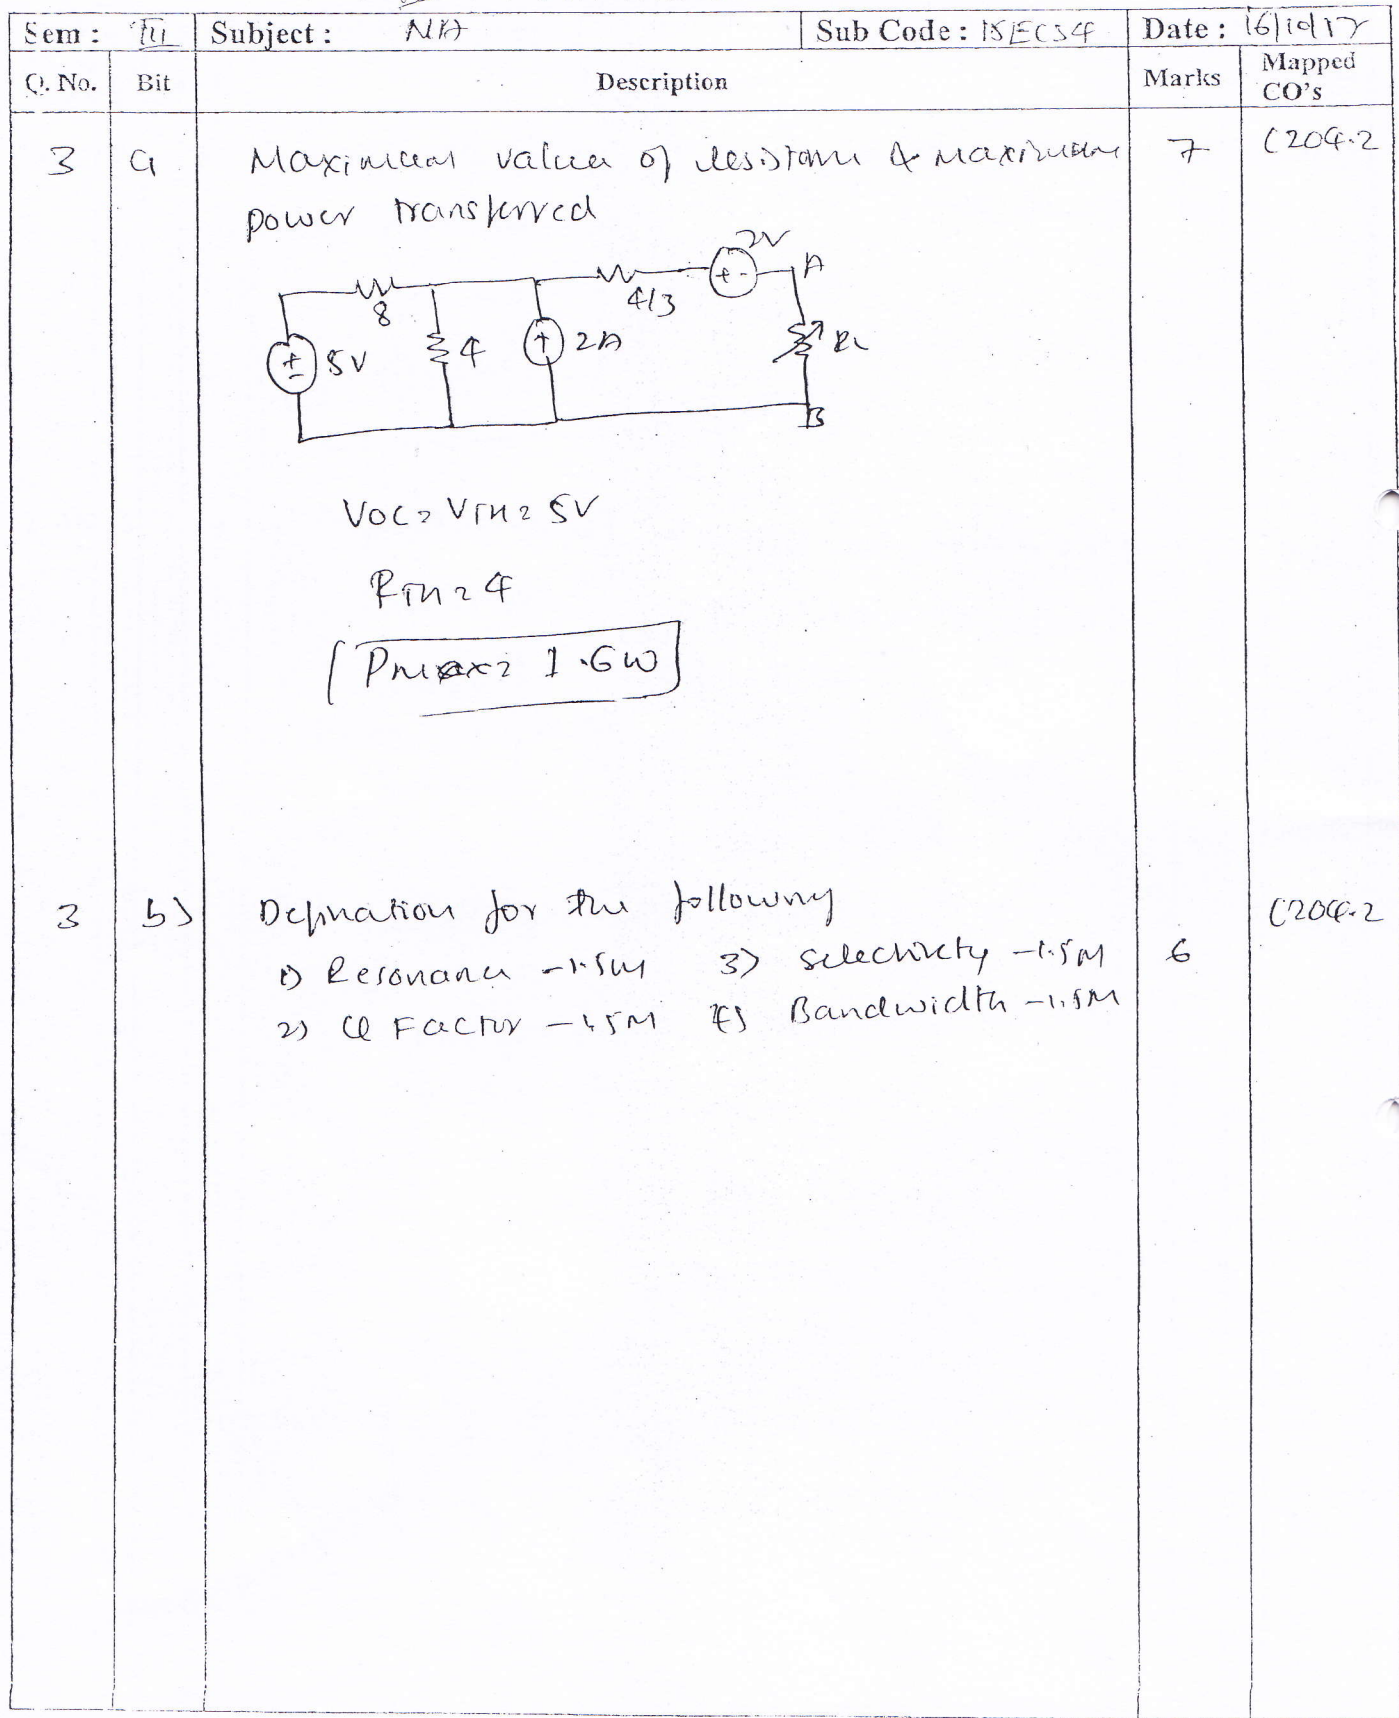 Sem : III Subject : NA Sub Code : 15EC34 Date : 16/10/17
Q. No. Bit Description Marks Mapped CO's
3 a Maximum value of resistance & maximum 7 C204.2
power transferred
2V
8 4/3 A
5V 4 2A RL
B
VOC = VTH = 5V
RTH = 4
Pmax = 1.6W
3 b) Defination for the following C204.2
1) Resonance - 1.5M 3) Selectivity - 1.5M 6
2) Q Factor - 1.5M 4) Bandwidth - 1.5M